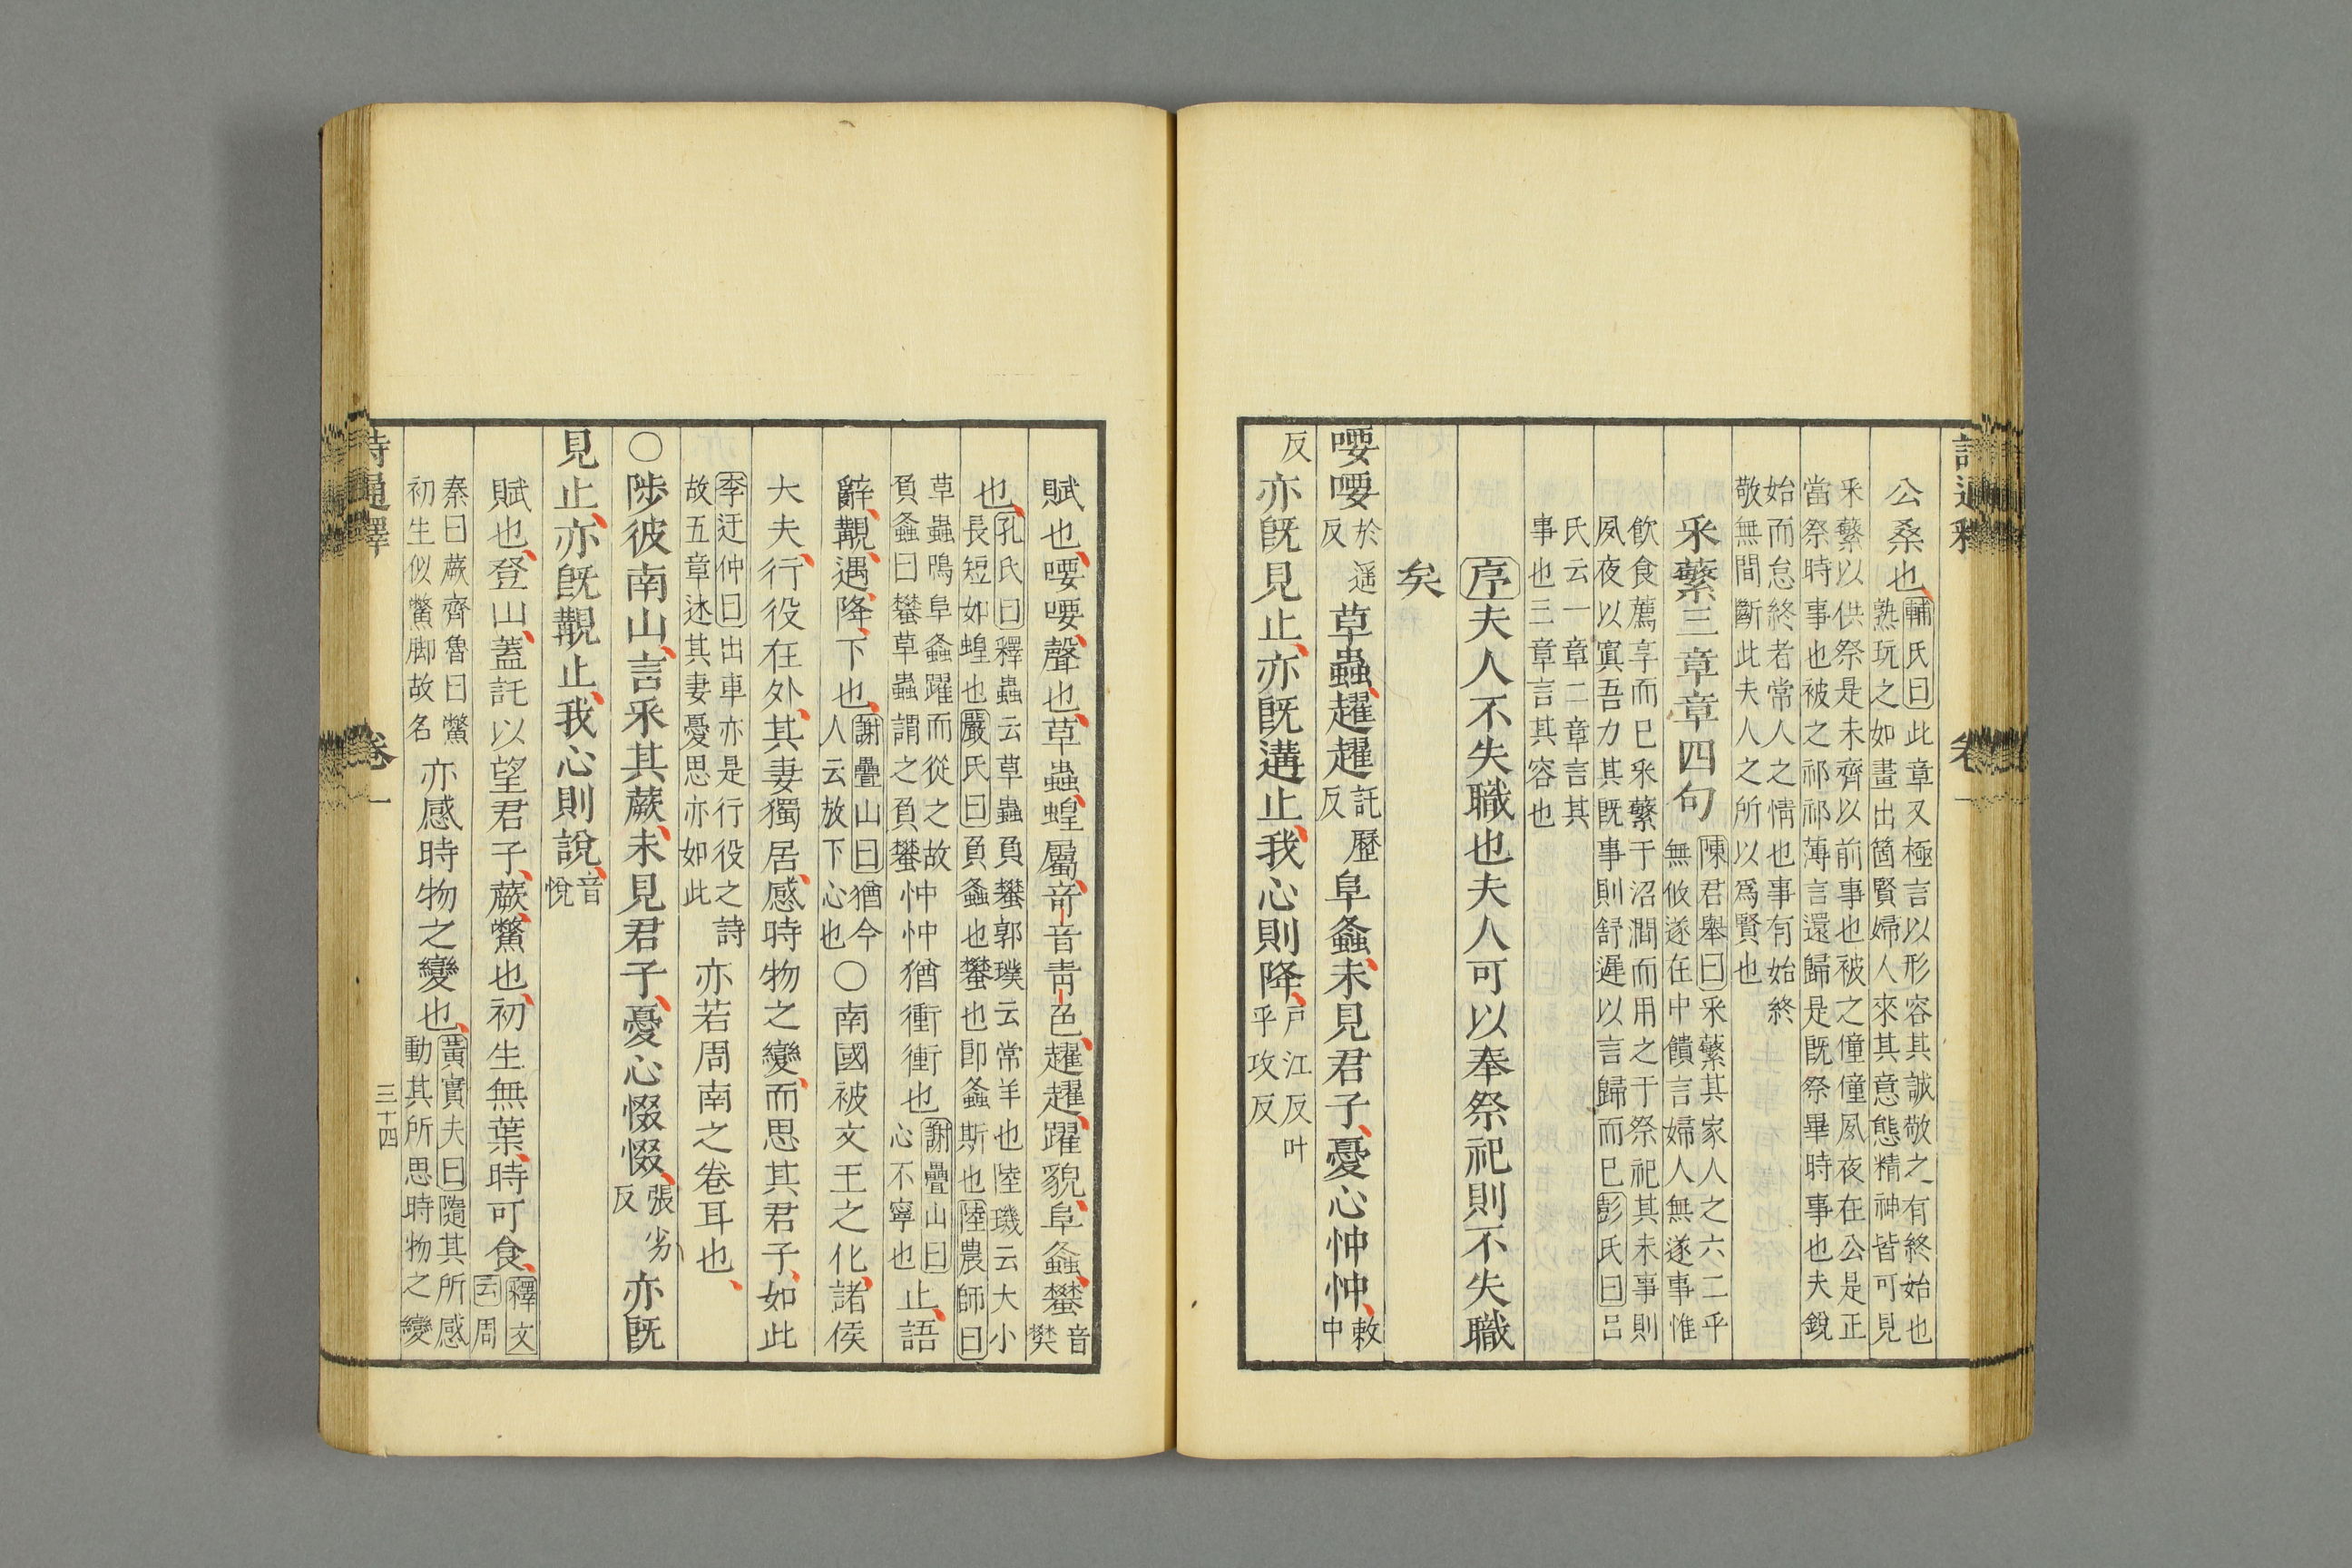 詩通釋
卷一
公桑也輔氏曰此章又極言以形容其誠敬之有終始也
熟玩之如畫出箇賢婦人來其意態精神皆可見
采蘩以供祭是未齊以前事也被之僮僮夙夜在公是正
當祭時事也被之祁祁薄言還歸是旣祭畢時事也夫銳
始而怠終者常人之情也事有始終
敬無間斷此夫人之所以爲賢也
采蘩三章章四句陳君舉曰采蘩其家人之六二乎
無攸遂在中饋言婦人無遂事惟
飲食薦享而已采蘩于沼澗而用之于祭祀其未事則
夙夜以寘吾力其旣事則舒遲以言歸而已彭氏曰呂
氏云一章二章言其
事也三章言其容也
序夫人不失職也夫人可以奉祭祀則不失職
矣
喓喓於遥反草蟲趯趯託歷反阜螽未見君子憂心忡忡敕中
反亦旣見止亦旣遘止我心則降戶江反叶乎攻反
賦也喓喓聲也草蟲蝗屬奇音靑色趯趯躍貌阜螽蠜音樊
也孔氏曰釋蟲云草蟲負蠜郭璞云常羊也陸璣云大小
長短如蝗也嚴氏曰負螽也蠜也卽螽斯也陸農師曰
草蟲鳴阜螽躍而從之故
負螽曰蠜草蟲謂之負蠜忡忡猶衝衝也謝疊山曰心不寧也止語
辭覯遇降下也謝疊山曰猶今人云放下心也○南國被文王之化諸侯
大夫行役在外其妻獨居感時物之變而思其君子如此
李迂仲曰出車亦是行役之詩
故五章述其妻憂思亦如此亦若周南之卷耳也
○陟彼南山言采其蕨未見君子憂心惙惙張劣反亦旣
見止亦旣覯止我心則說音悅
賦也登山蓋託以望君子蕨鱉也初生無葉時可食釋文云周
秦曰蕨齊魯曰鱉
初生似鱉脚故名亦感時物之變也黃實夫曰隨其所感
動其所思時物之變
詩通釋
卷一
三十四